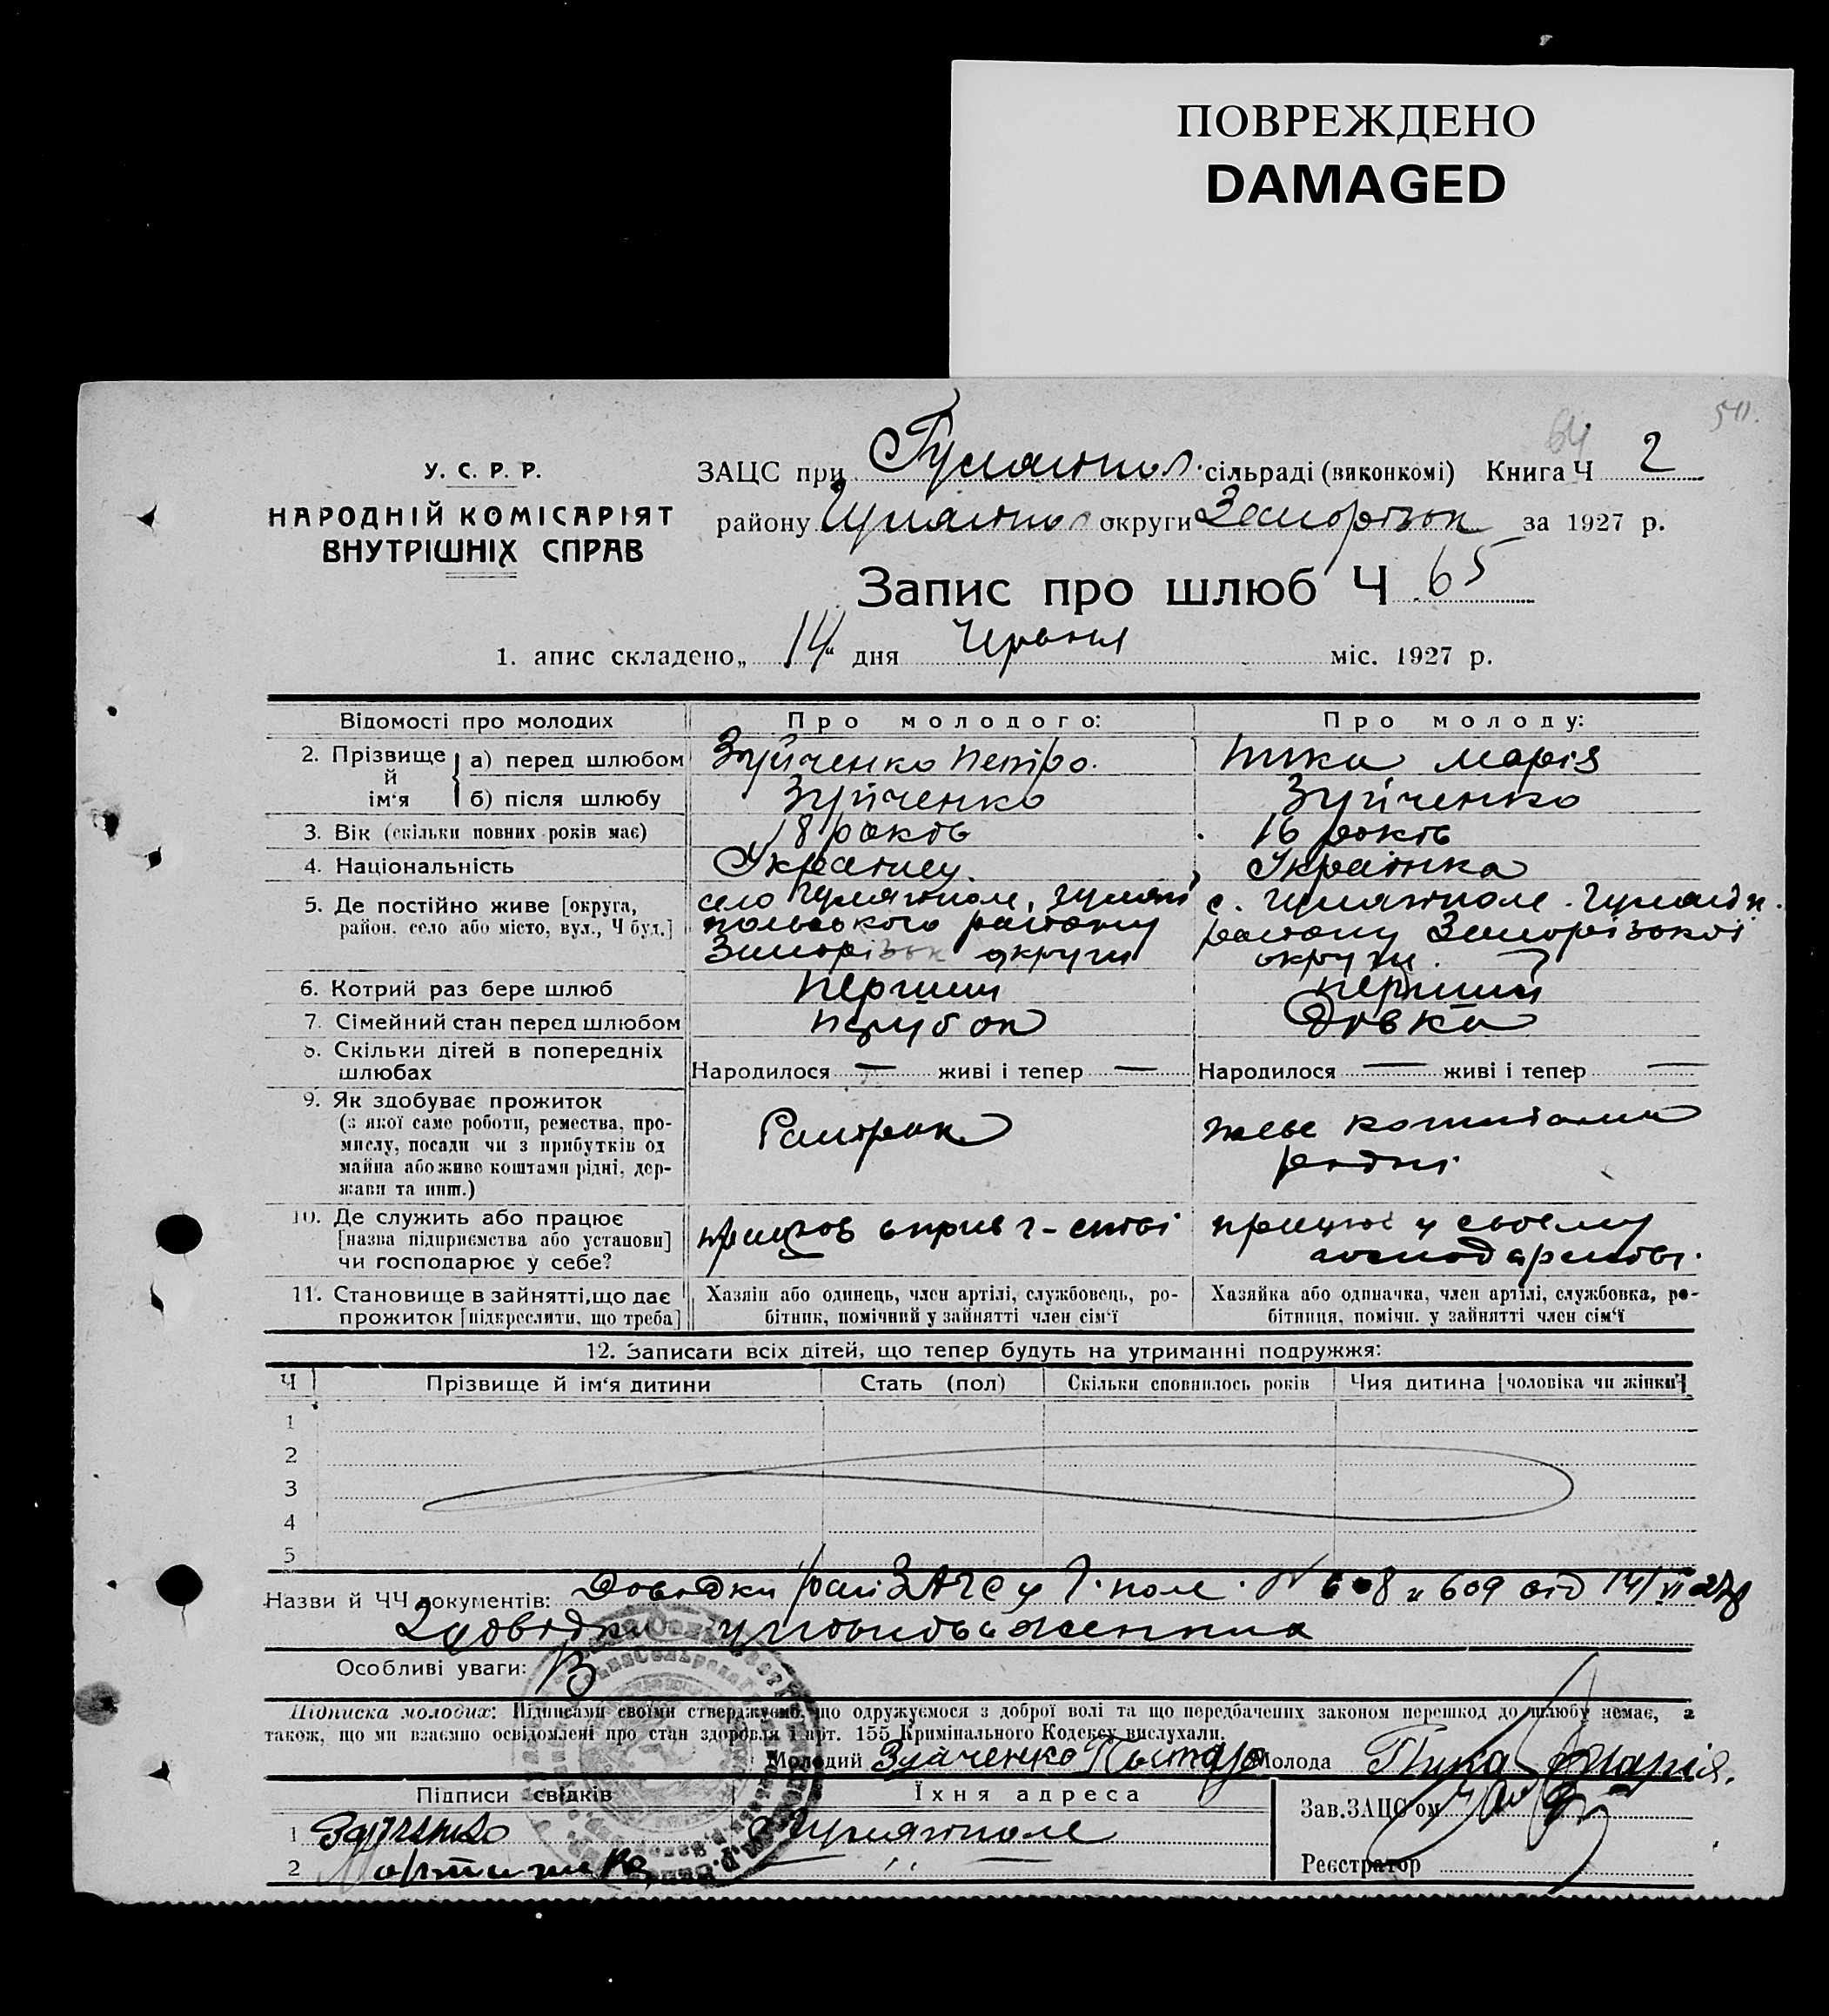 ПОВРЕЖДЕНО
DAMAGED
64
У. С. Р. Р.
НАРОДНІЙ КОМІСАРІЯТ
ВНУТРІШНІХ СПРАВ
ЗАЦС при Гуляйпол. сільраді (виконкомі) Книга Ч 2
району Гуляйпол округи Запорізьк за 1927 р.
Запис про шлюб Ч 65
1. апис складено „14“ дня Червня міс. 1927 р.
Відомості про молодих Про молодого: Про молоду:
2. Прізвище й ім'я а) перед шлюбом Зуйченко Петро. Пика Марія
б) після шлюбу Зуйченко Зуйченко
3. Вік (скільки повних років має) 18 років 16 років
4. Національність Украінец. Украінка
5. Де постійно живе [округа, район. село або місто, вул., Ч буд.] село Гуляйполе, Гуляй с. Гуляйполе. Гуляйп.
польського району району Запорізькоі
Запорізьк округи округи.
6. Котрий раз бере шлюб перший перший
7. Сімейний стан перед шлюбом парубок Дівка
8. Скільки дітей в попередніх шлюбах Народилося — живі і тепер — Народилося — живі і тепер —
9. Як здобуває прожиток
(з якої саме роботи, ремества, про-
мислу, посади чи з прибутків од
майна або живе коштами рідні, дер-
жави та инш.) живе коштами
рідні
10. Де служить або працює
[назва підприємства або установи]
чи господарює у себе? працює у своєму
господарстві.
11. Становище в зайнятті, що дає прожиток [підкреслити, що треба] Хазяїн або одинець, член артілі, службовець, ро-
бітник, помічний у зайнятті член сім'ї Хазяйка або одиначка, член артілі, службовка, ро-
бітниця, помічн. у зайнятті член сім'ї
12. Записати всіх дітей, що тепер будуть на утриманні подружжя:
Ч Прізвище й ім'я дитини Стать (пол) Скільки сповнилось років Чия дитина [чоловіка чи жінки]
1
2
3
4
5
Назви й ЧЧ документів: Довідки рай ЗАГС у Г. поле. N 608 и 609 від 14/VI 27р
2 довідки уповноваження
Особливі уваги:
Підписка молодих: Підписами своїми стверджуємо, що одружуємося з доброї волі та що передбачених законом перешкод до шлюбу немає, а
також, що ми взаємно освідомлені про стан здоровля і арт. 155 Кримінального Кодексу вислухали.
Молодий Зуйченко Молода Пика Марія.
Підписи свідків Їхня адреса Зав. ЗАЦС'ом
1 Зуйченко Гуляйполе
2
Реєстратор